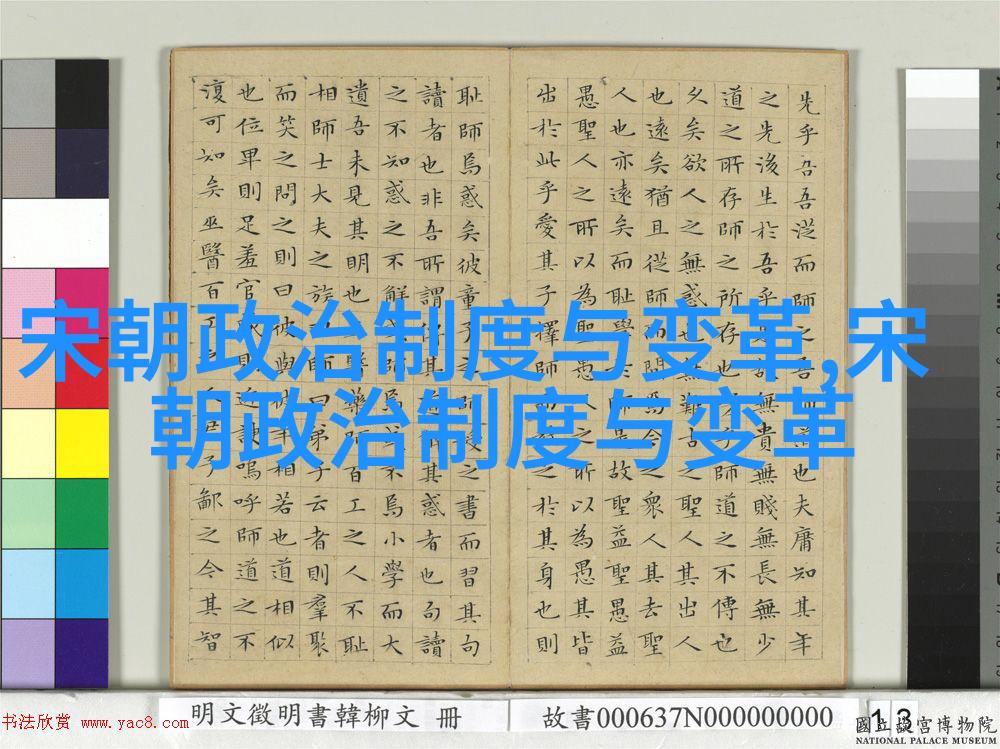 先乎吾吾從而師之吾師道也夫庸知其年
之先後生於吾乎是故無貴無賤無長無少
道之所存師之所存也嗟乎師道之不傳也
久矣欲人之無惑也難矣古之聖人其出人
也遠矣猶且從師而問焉今之衆人其去聖
人也亦遠矣而恥學於師是故聖益聖愚益
愚聖人之所以為聖愚人之所以為愚其皆
出於此乎愛其子擇師而教之於其身也則
恥師焉惑矣彼童子之師授之書而習其句
讀者也非吾所謂傳其道解其惑者也句讀
之不知惑之不解或師焉或不焉小學而大
遺吾未見其明也巫醫藥師百工之人不恥
相師士大夫之族曰師曰弟子云者則羣聚
而笑之問之則曰彼與彼年相若也道相似
也位卑則足羞官大則近諛嗚呼師道之不
復可知矣巫醫百工之人君子鄙之今其智
宋朝政治制度与变革,宋
朝政治制度与变革
明文徵明書韓柳文 冊
故書000637N000000000
13
书法欣赏
www.yac8.com
國立故宮博物院
NATIONAL PALACE MUSEUM